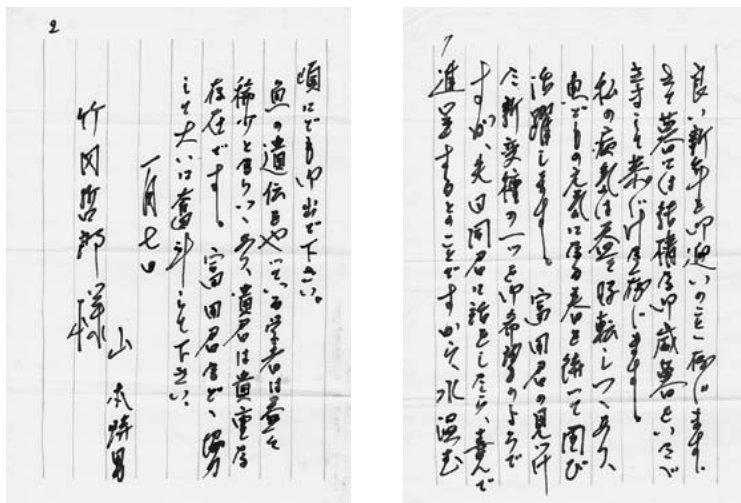 1
良い新年を御迎いのことと存じます。
さて暮には結構な御歳暮をいただ
きまして恭けなく存じます。
私の病気は益々好転しつつあり、
魚どもの元気になる春を待って再び
活躍します。富田君の見つけ
た新変種の一つを御希望のようで
すが、先日同君に話をしたら、喜んで
進呈するとのことですから、水温む
2
頃にでも御出で下さい。
魚の遺伝をやっている学者は益々
稀少となりつつあり、貴君は貴重な
存在です。富田君などと協力
して大いに奮斗して下さい。
一月七日
山本時男
竹内哲郎様